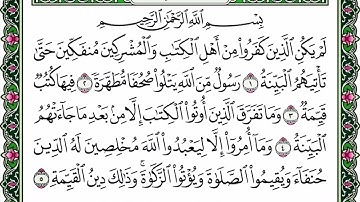 بِسْمِ اللَّهِ الرَّحْمَٰنِ الرَّحِيمِ
لَمْ يَكُنِ الَّذِينَ كَفَرُوا مِنْ أَهْلِ الْكِتَابِ وَالْمُشْرِكِينَ مُنفَكِّينَ حَتَّىٰ
تَأْتِيَهُمُ الْبَيِّنَةُ ١ رَسُولٌ مِّنَ اللَّهِ يَتْلُوا صُحُفًا مُّطَهَّرَةً ٢ فِيهَا كُتُبٌ
قَيِّمَةٌ ٣ وَمَا تَفَرَّقَ الَّذِينَ أُوتُوا الْكِتَابَ إِلَّا مِن بَعْدِ مَا جَاءَتْهُمُ
الْبَيِّنَةُ ٤ وَمَا أُمِرُوا إِلَّا لِيَعْبُدُوا اللَّهَ مُخْلِصِينَ لَهُ الدِّينَ
حُنَفَاءَ وَيُقِيمُوا الصَّلَوٰةَ وَيُؤْتُوا الزَّكَوٰةَ ۚ وَذَٰلِكَ دِينُ الْقَيِّمَةِ ٥